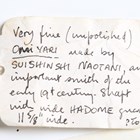 Very fine (unpolished)
Omi YARI made by
SUISHINSHI NAOTANE, an
important smith of the
early 19th century. Shaft
with wide HADOME
11 5/8" wide.
PTO